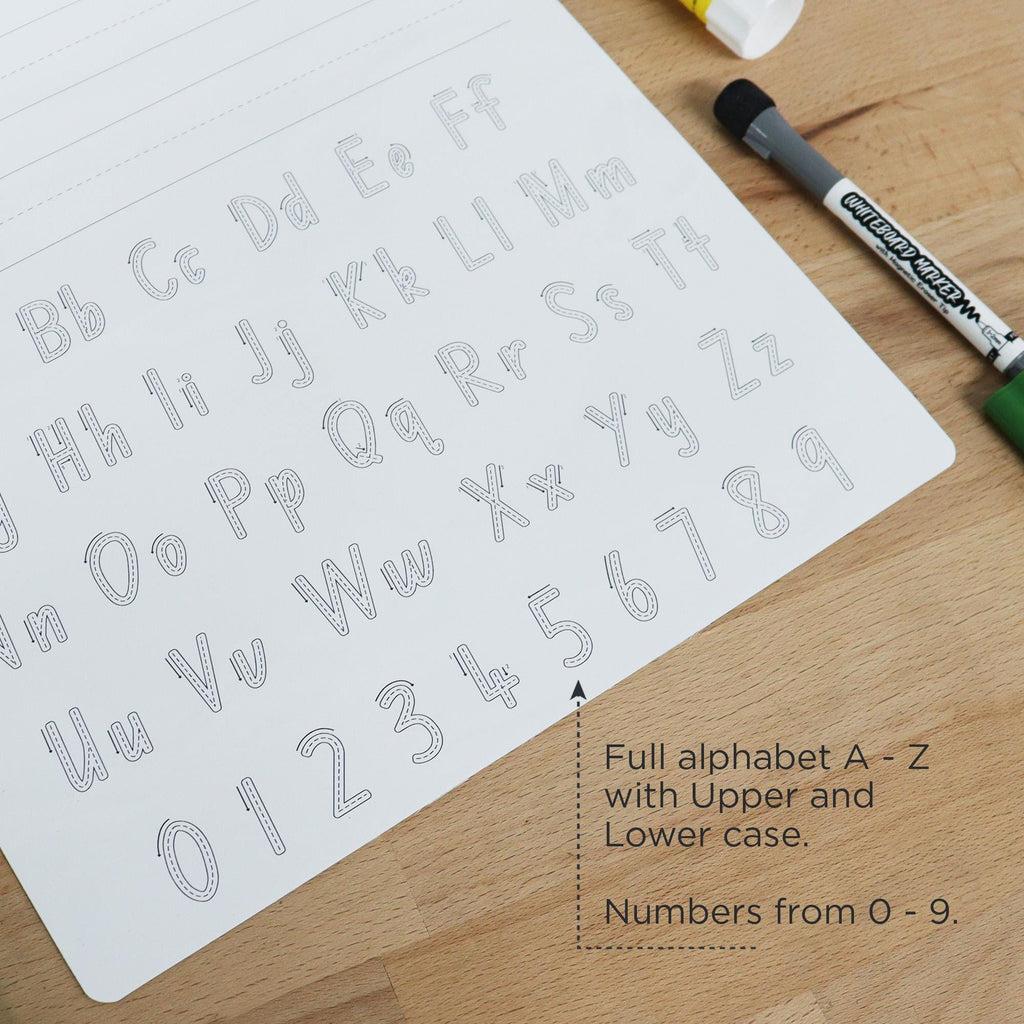 Bb Cc Dd Ee Ff
Hh Ii Jj Kk Ll Mm
Nn Oo Pp Qq Rr Ss Tt
Uu Vv Ww Xx Yy Zz
0 1 2 3 4 5 6 7 8 9
WHITEBOARD MARKER
with Magnetic Eraser Tip
Full alphabet A - Z
with Upper and
Lower case.
Numbers from 0 - 9.